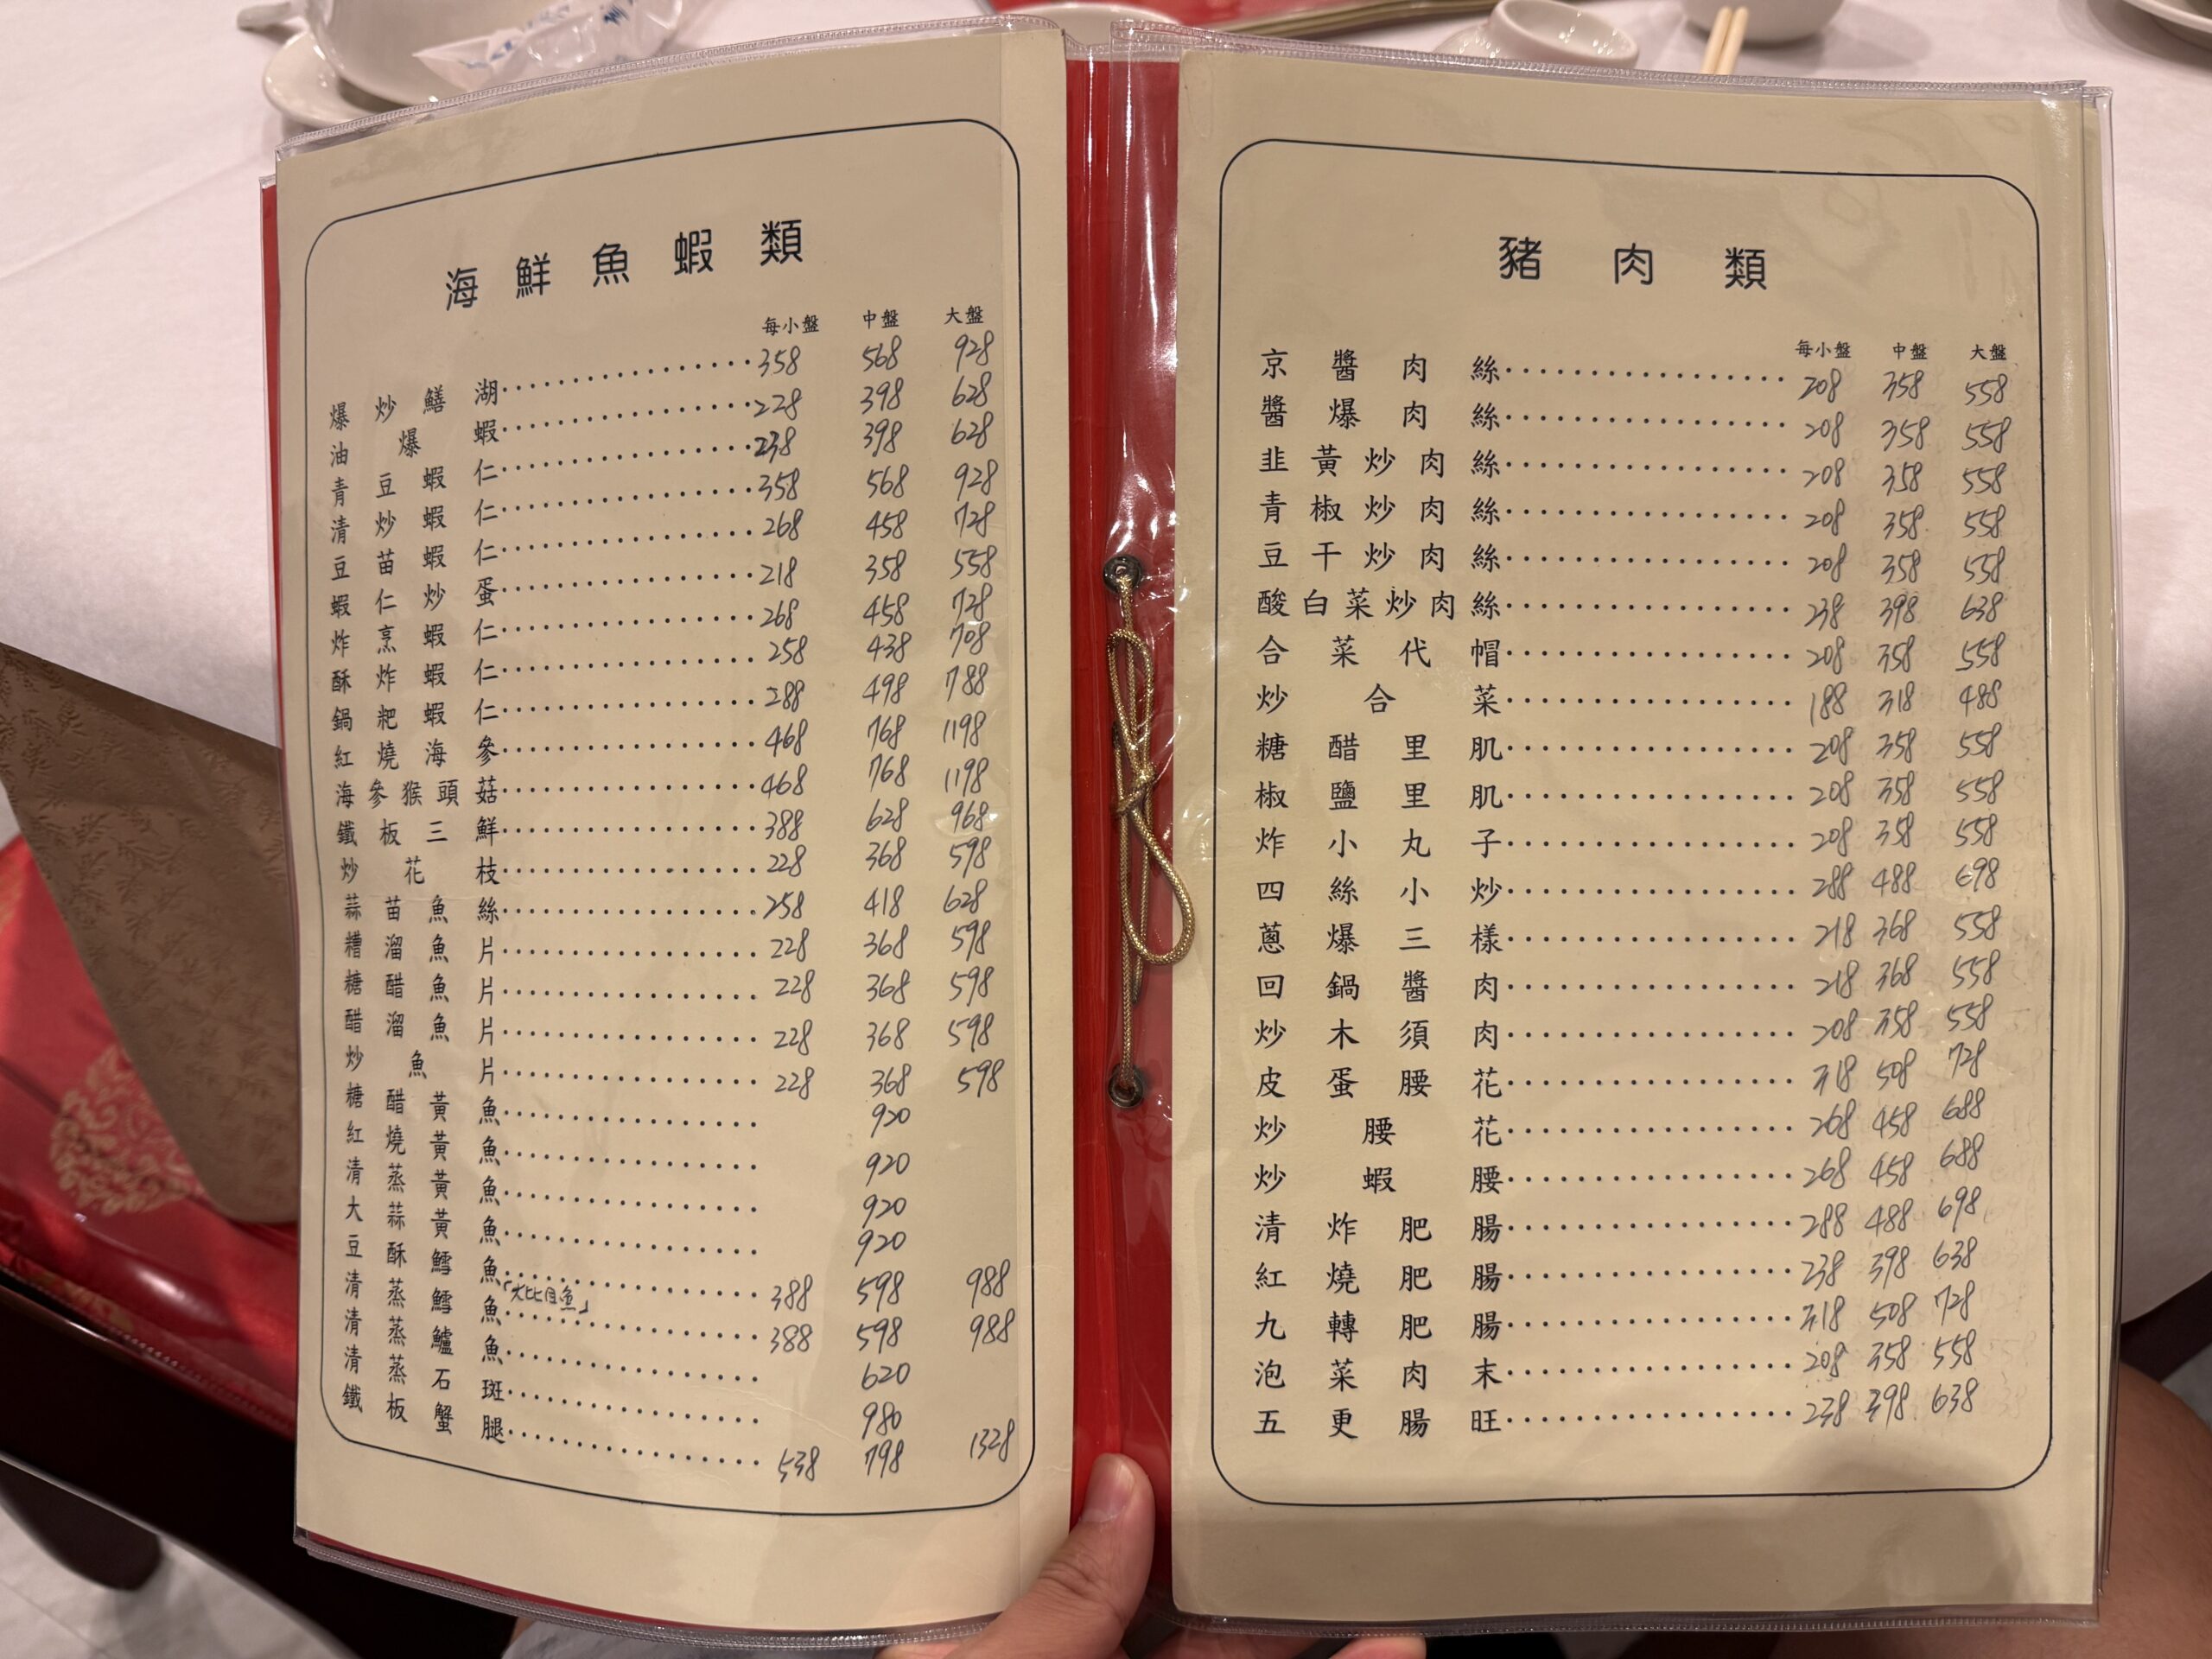 海鮮魚蝦類
每小盤 中盤 大盤
爆炒鱔湖 358 568 928
油爆蝦 228 398 628
青豆蝦仁 238 398 628
清炒蝦仁 358 568 928
豆苗蝦仁 268 458 728
蝦仁炒蛋 218 358 558
炸烹蝦仁 268 458 728
酥炸蝦仁 258 438 708
鍋粑蝦仁 288 498 788
紅燒海參 468 768 1198
海參猴頭菇 468 768 1198
鐵板三鮮 388 628 968
炒花枝 228 368 598
蒜苗魚絲 258 418 628
糟溜魚片 228 368 598
糖醋魚片 228 368 598
醋溜魚片 228 368 598
炒魚片 228 368 598
糖醋黃魚 920
紅燒黃魚 920
清蒸黃魚 920
大蒜黃魚 920
豆酥鱈魚 388 598 988
「大比目魚」
清蒸鱈魚 388 598 988
清蒸鱸魚 620
清蒸石斑 980
鐵板蟹腿 538 798 1328
豬肉類
每小盤 中盤 大盤
京醬肉絲 208 358 558
醬爆肉絲 208 358 558
韭黃炒肉絲 208 358 558
青椒炒肉絲 208 358 558
豆干炒肉絲 208 358 558
酸白菜炒肉絲 238 398 638
合菜代帽 208 358 558
炒合菜 188 318 488
糖醋里肌 208 358 558
椒鹽里肌 208 358 558
炸小丸子 208 358 558
四絲小炒 288 488 698
蔥爆三樣 218 368 558
回鍋醬肉 218 368 558
炒木須肉 208 358 558
皮蛋腰花 318 508 728
炒腰花 268 458 688
炒蝦腰 268 458 688
清炸肥腸 288 488 698
紅燒肥腸 238 398 638
九轉肥腸 318 508 728
泡菜肉末 208 358 558
五更腸旺 238 398 638